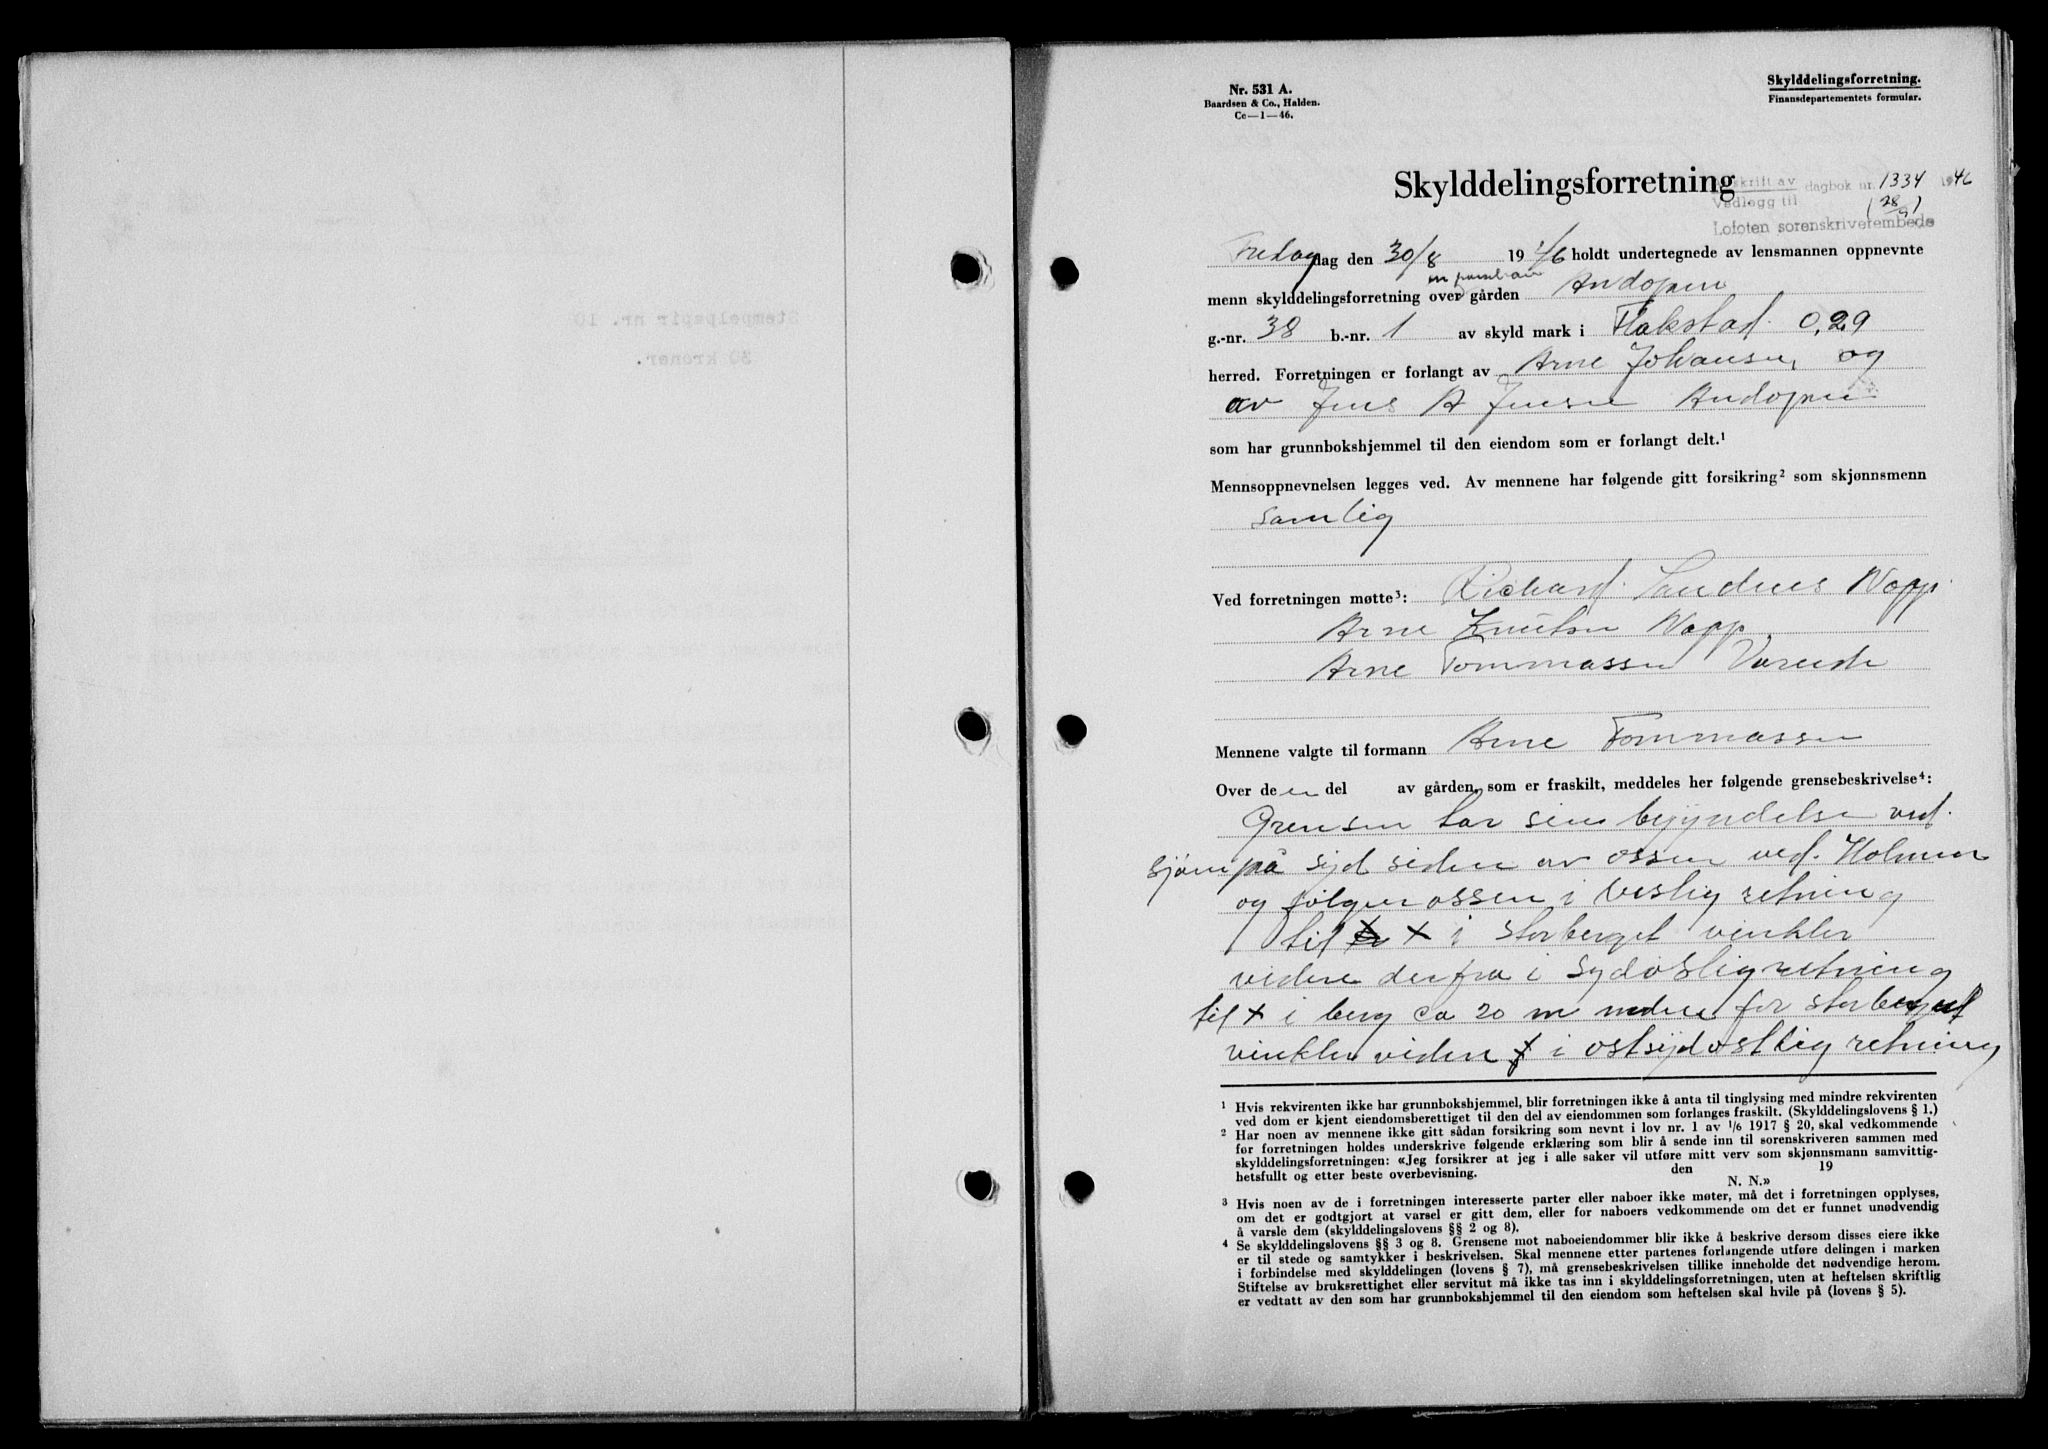 Nr. 531 A.
Baardsen & Co., Halden.
Ce—1—46.
Skylddelingsforretning.
Finansdepartementets formular.
Skylddelingsforretning
skrift av dagbok nr. 1334 1946
Vedlegg til (28/9)
Lofoten sorenskriverembede
Fredag dag den 30/8 1946 holdt undertegnede av lensmannen oppnevnte
menn skylddelingsforretning over gården Andopen
g.-nr. 38 b.-nr. 1 av skyld mark i Flakstad. 0,29
herred. Forretningen er forlangt av Arne Johansen, og
av Jens A Jensen Andopen
som har grunnbokshjemmel til den eiendom som er forlangt delt.¹
Mennsoppnevnelsen legges ved. Av mennene har følgende gitt forsikring² som skjønnsmenn
samlig
Ved forretningen møtte³: Richard Sandnes Napp.
Arne Knutsen Napp.
Arne Tommassen Vareide
Mennene valgte til formann Arne Tommassen
Over de en del av gården, som er fraskilt, meddeles her følgende grensebeskrivelse⁴:
Grensen tar sin begyndelse ved.
sjøen på syd siden av ossen ved. Holmen
og følger ossen i vestlig retning
til x i storberget vinkler
videre derfra i sydøstlig retning
til x i berg ca 20 m neden for storberget
vinkler videre i ostsydostlig retning
¹ Hvis rekvirenten ikke har grunnbokshjemmel, blir forretningen ikke å anta til tinglysing med mindre rekvirenten
ved dom er kjent eiendomsberettiget til den del av eiendommen som forlanges fraskilt. (Skylddelingslovens § 1.)
² Har noen av mennene ikke gitt sådan forsikring som nevnt i lov nr. 1 av 1/6 1917 § 20, skal vedkommende
før forretningen holdes underskrive følgende erklæring som blir å sende inn til sorenskriveren sammen med
skylddelingsforretningen: «Jeg forsikrer at jeg i alle saker vil utføre mitt verv som skjønnsmann samvittig-
hetsfullt og etter beste overbevisning. den 19
N. N.»
³ Hvis noen av de i forretningen interesserte parter eller naboer ikke møter, må det i forretningen opplyses,
om det er godtgjort at varsel er gitt dem, eller for naboers vedkommende om det er funnet unødvendig
å varsle dem (skylddelingslovens §§ 2 og 8).
⁴ Se skylddelingslovens §§ 3 og 8. Grensene mot naboeiendommer blir ikke å beskrive dersom disses eiere ikke
er til stede og samtykker i beskrivelsen. Skal mennene etter partenes forlangende utføre delingen i marken
i forbindelse med skylddelingen (lovens § 7), må grensebeskrivelsen tillike inneholde det nødvendige herom.
Stiftelse av bruksrettighet eller servitut må ikke tas inn i skylddelingsforretningen, uten at heftelsen skriftlig
er vedtatt av den som har grunnbokshjemmel til den eiendom som heftelsen skal hvile på (lovens § 5).